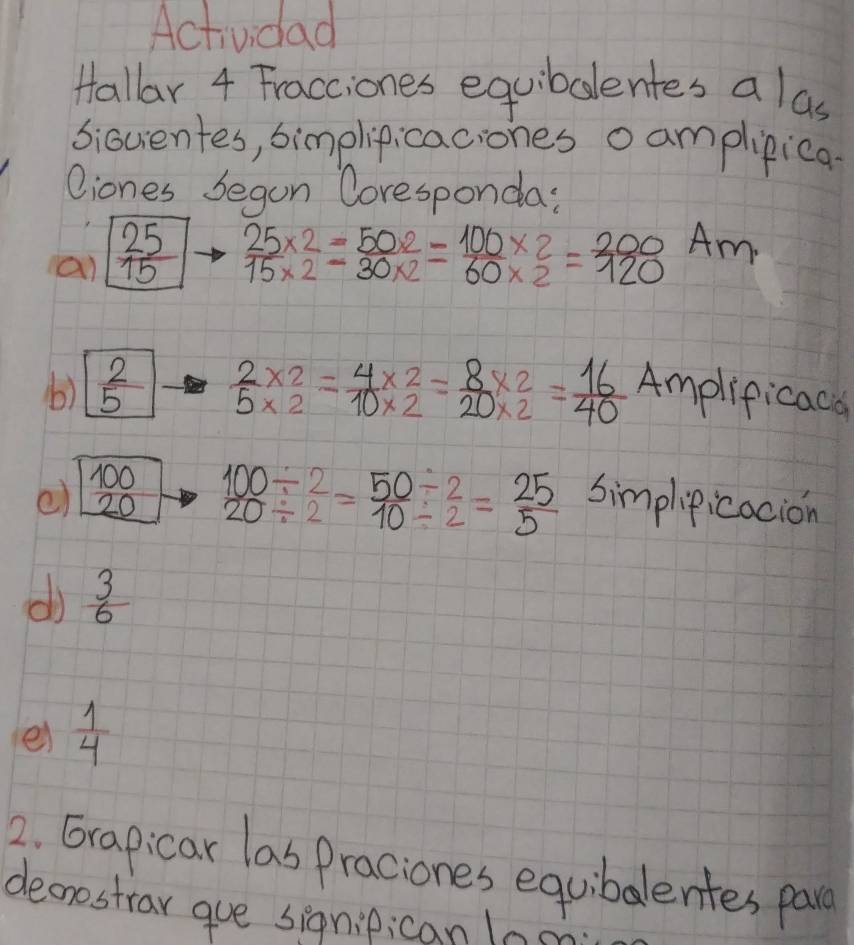 Actividad
Hallar 4 Fracciones equibalentes a las
siguientes, simplificaciones o amplifica-
Ciones segun Coresponda:
a) 25/15 → 25×2/15×2 = 50×2/30×2 = 100×2/60×2 = 200/120 Am.
b) 2/5 → 2×2/5×2 = 4×2/10×2 = 8×2/20×2 = 16/40 Amplificació
c) 100/20 → 100÷2/20÷2 = 50÷2/10÷2 = 25/5 simplificación
d) 3/6
e) 1/4
2. Graficar las fraciones equibalentes para
demostrar que significan